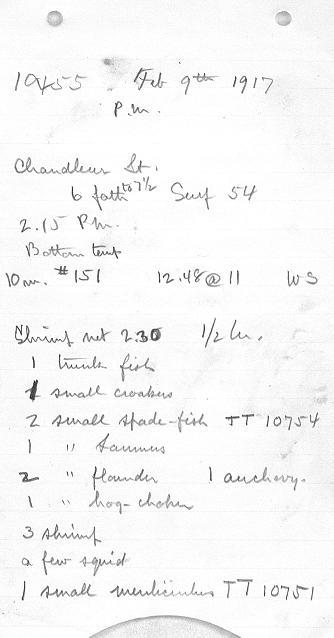 10455 Feb 9th 1917
P.M.
Chandleur St.
6 fath to 7 1/2 Surf 54
2.15 P.M.
Bottom temp
10m. #151 12.48@11 WS
Shrimp net 2.30 1/2 hr.
1 trunk fish
1 small croakers
2 small spade-fish TT 10754
1 "
2 " flounder 1 anchovy.
1 " hog-choker
3 shrimp
a few squid
1 small menticirrhus TT 10751